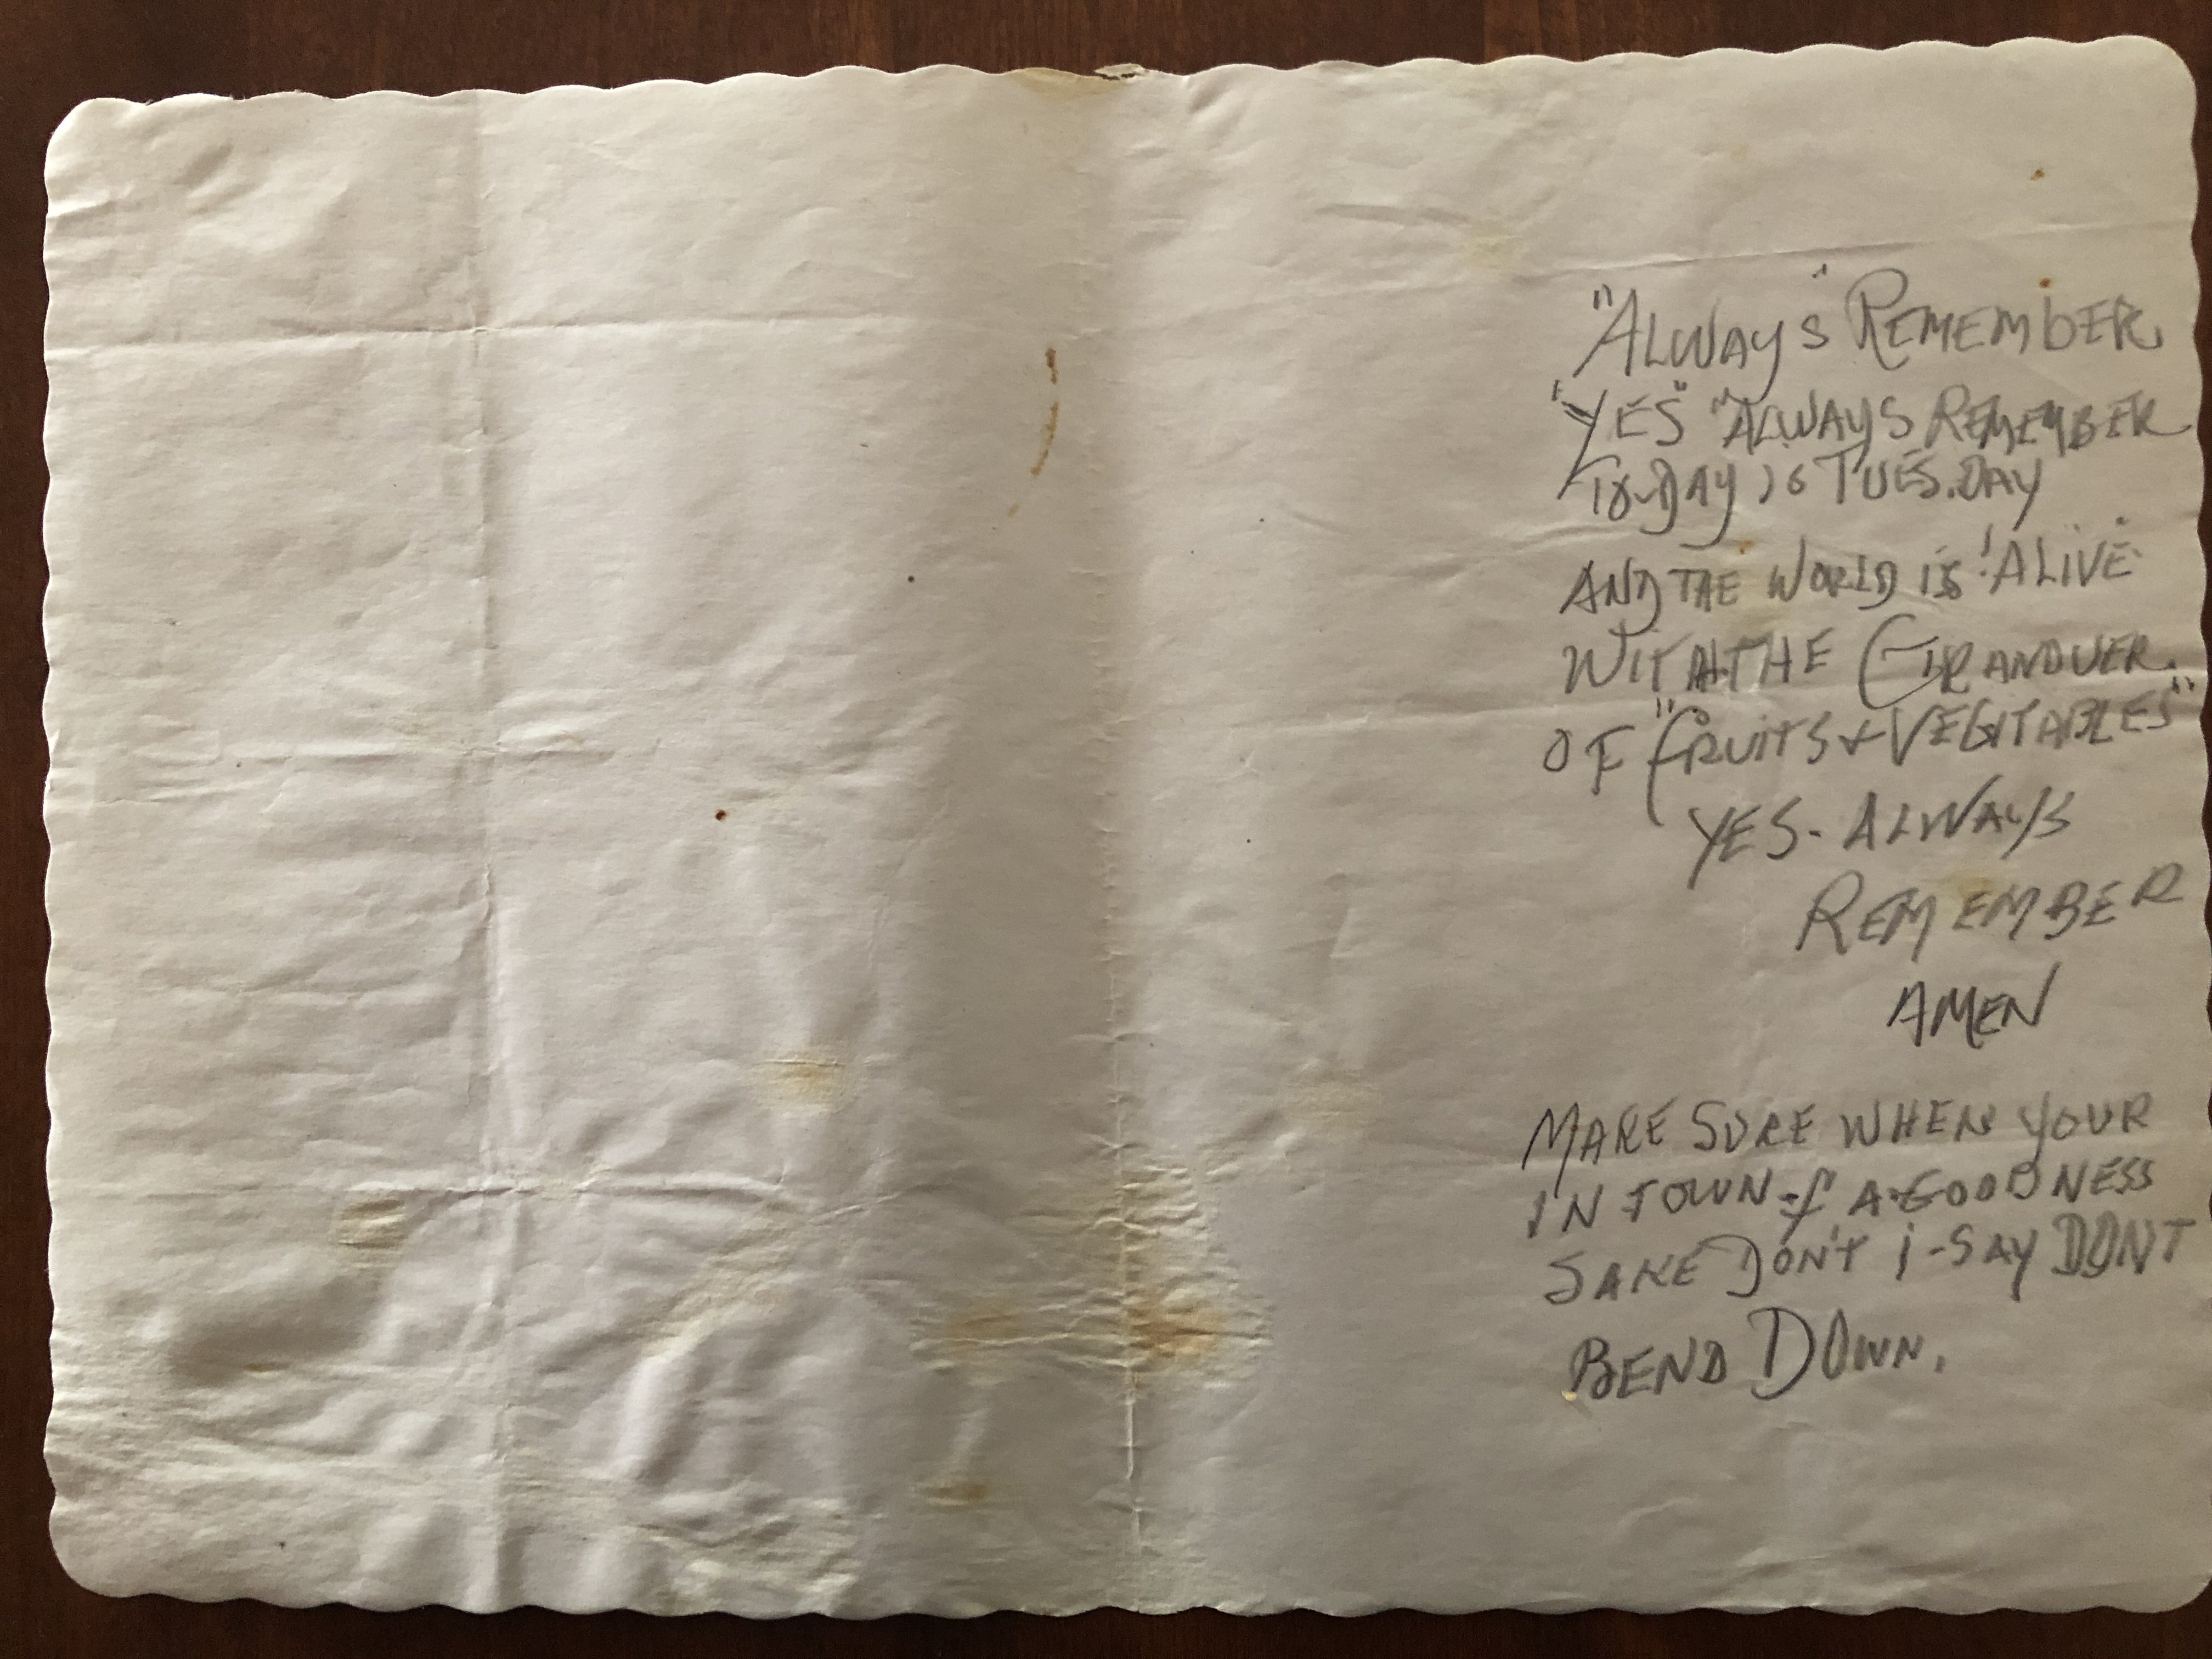 "ALWAYS REMEMBER
"YES" "ALWAYS REMEMBER
TO-DAY is TUES.DAY
AND THE WORLD is 'ALIVE'
WITH THE GRANDUER
OF "FRUITS & VEGITABLES"
YES- ALWAYS
REMEMBER
AMEN
MAKE SURE WHEN YOUR
IN TOWN-f A-GOODNESS
SAKE DON'T i-SAY DONT
BEND DOWN.